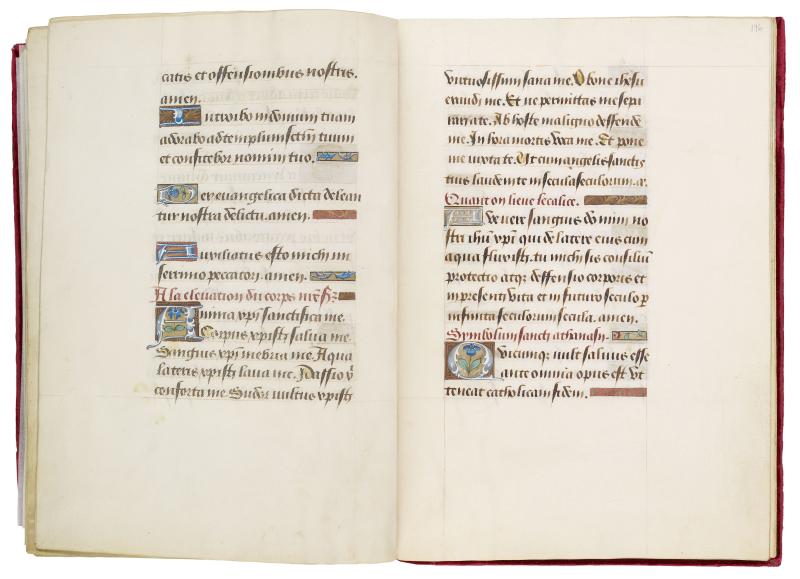 catis et offensionibus nostris.
amen.
Introibo in domum tuam
adorabo ad templum sctm̄ tuum
et confitebor nomini tuo.
Per euangelica dicta delean
tur nostra delicta. amen.
Auxiliatus esto michi mi
serrimo peccatori. amen.
A la eleuation du corps nr̄e sr̄
Anima xpi sanctifica me.
Corpus xpisti salua me.
Sanguis xpi inebria me. Aqua
lateris xpisti laua me. Passio x̄
conforta me. Sudor uultus xpisti
196
virtuosissim sana me. O bone ihesu
exaudi me. Et ne permittas me sepa
rari a te. Ab hoste maligno deffende
me. In hora mortis voca me. Et pone
me iuxta te. Ut cum angelis sanctis
tuis laudem te in secula seculorum. a.
Quant on lieue le calice.
Aue vere sanguis dn̄i mīni no
stri ihū xpī qui de latere eius cum
aqua fluxisti. tu michi sis consiliū
protectio atqꝫ deffensio corporis et
in presenti vita et in futuro seculo p̄
infinita seculorum secula. amen.
Symbolum sancti athanasii.
Quicumqꝫ uult saluus esse
ante omnia opus est vt
teneat catholicam fidem.